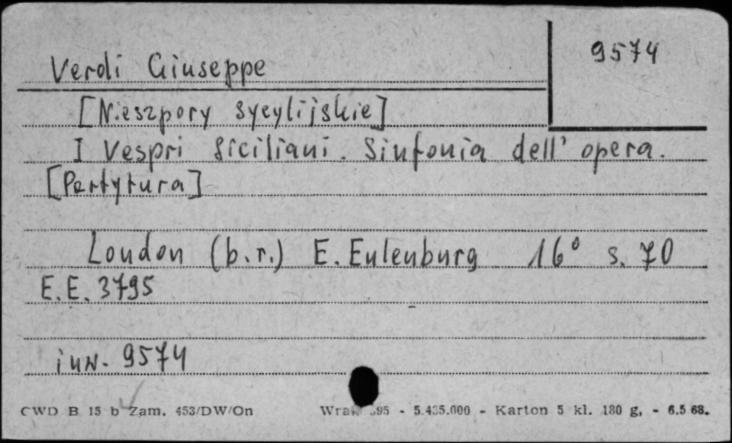 9574
Verdi Giuseppe
[Nieszpory sycylijskie]
I Vespri Siciliani. Sinfonia dell' opera.
[Partytura]
London (b.r.) E. Eulenburg 16° s. 70
E.E. 3795
inw. 9574
CWD B 15 b Zam. 453/DW/On - 5.435.000 - Karton 5 kl. 180 g, - 6.5 68.